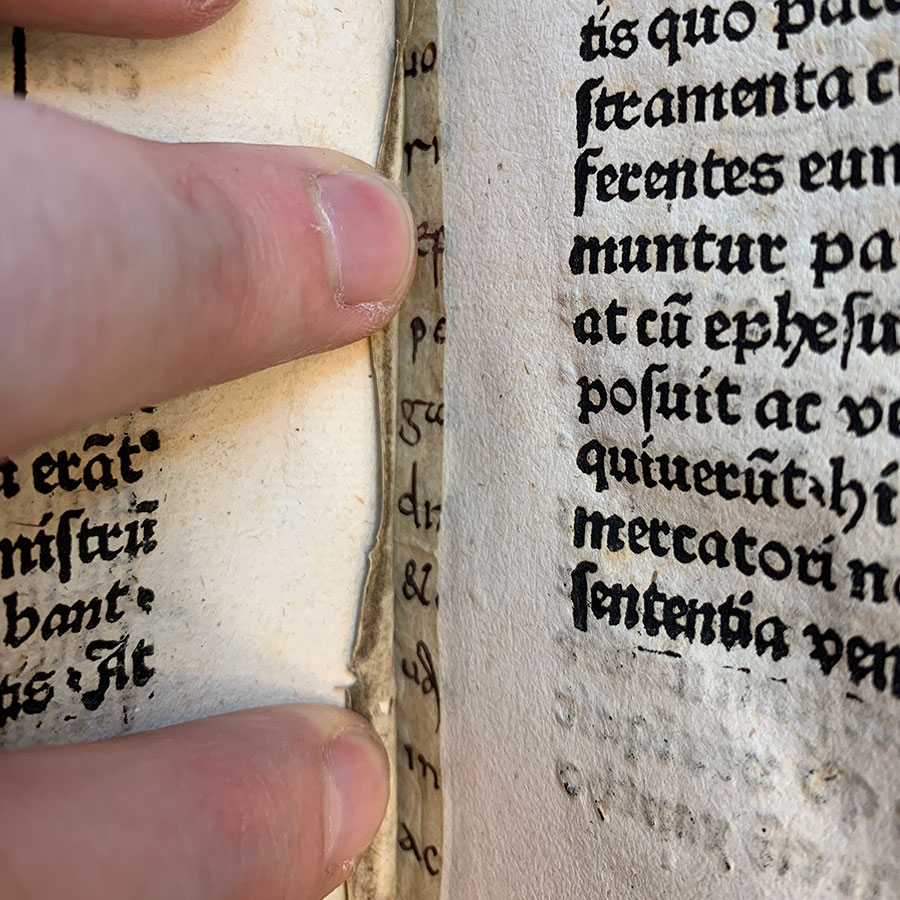 erãt
nistrũ
bant
tis At
uo
ri
pe
gu
dn
&
ad
in
ac
tis quo pac
stramenta c
ferentes eun
muntur pa
at cũ ephesu
posuit ac ve
quiuerũt hi
mercatori n
sententia ven